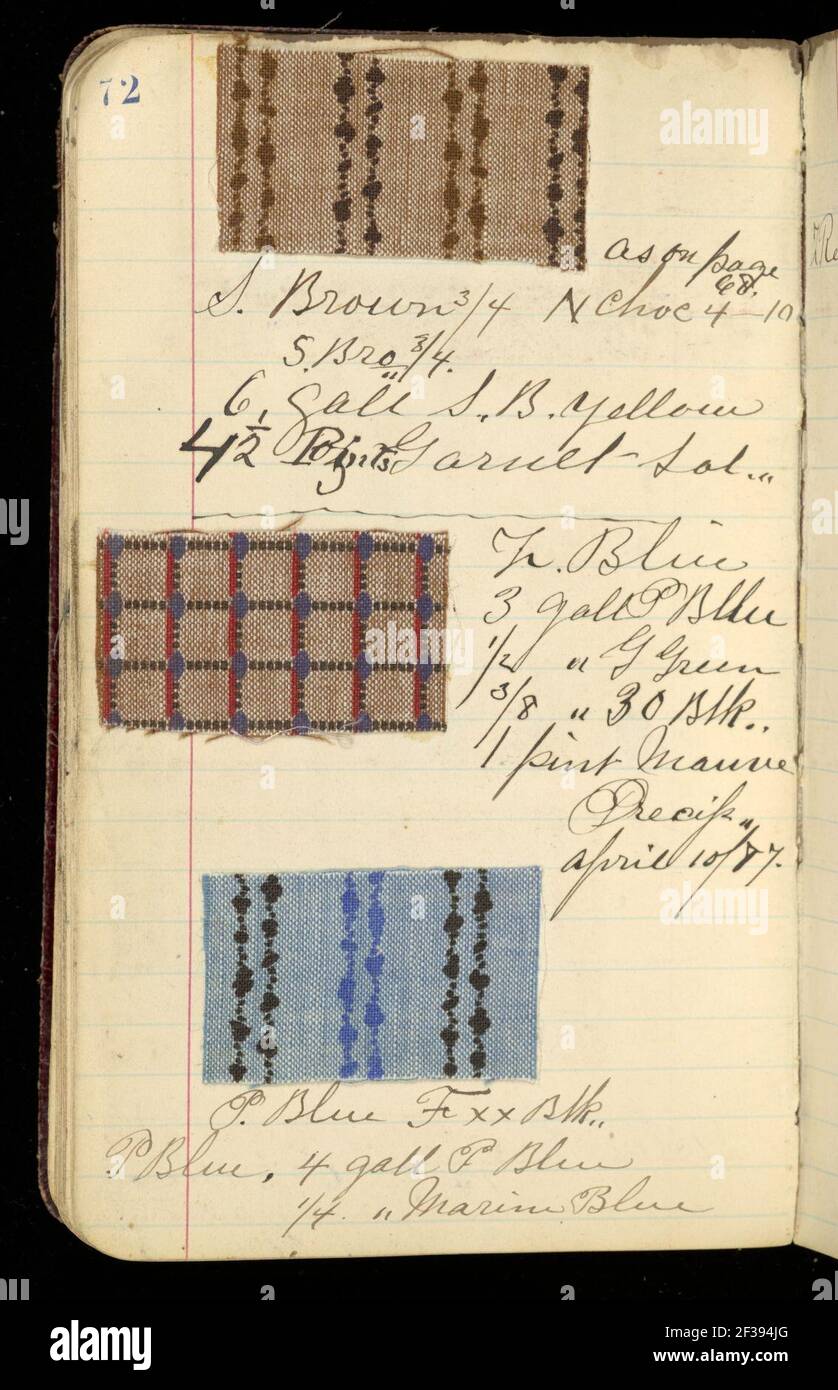 72
as on page
68.
S. Brown 3/4 N Choc 4 - 10
S. Bro 3/4.
6, gall S. B. Yellow
4 1/2 Points Garnet Sol. "
L. Blue
3 gall P Blue
1/2 " G Green
3/8 " 30 Blk. "
1 pint Mauve
Precip "
April 10/87.
P. Blue F x x Blk. "
P Blue. 4 gall P Blue
1/4. " Marine Blue
alamy
Image ID: 2F394JG
www.alamy.com